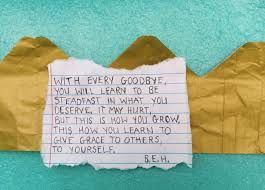 WITH EVERY GOODBYE,
YOU WILL LEARN TO BE
STEADFAST IN WHAT YOU
DESERVE. IT MAY HURT,
BUT THIS IS HOW YOU GROW.
THIS HOW YOU LEARN TO
GIVE GRACE TO OTHERS,
TO YOURSELF.
B.E.H.